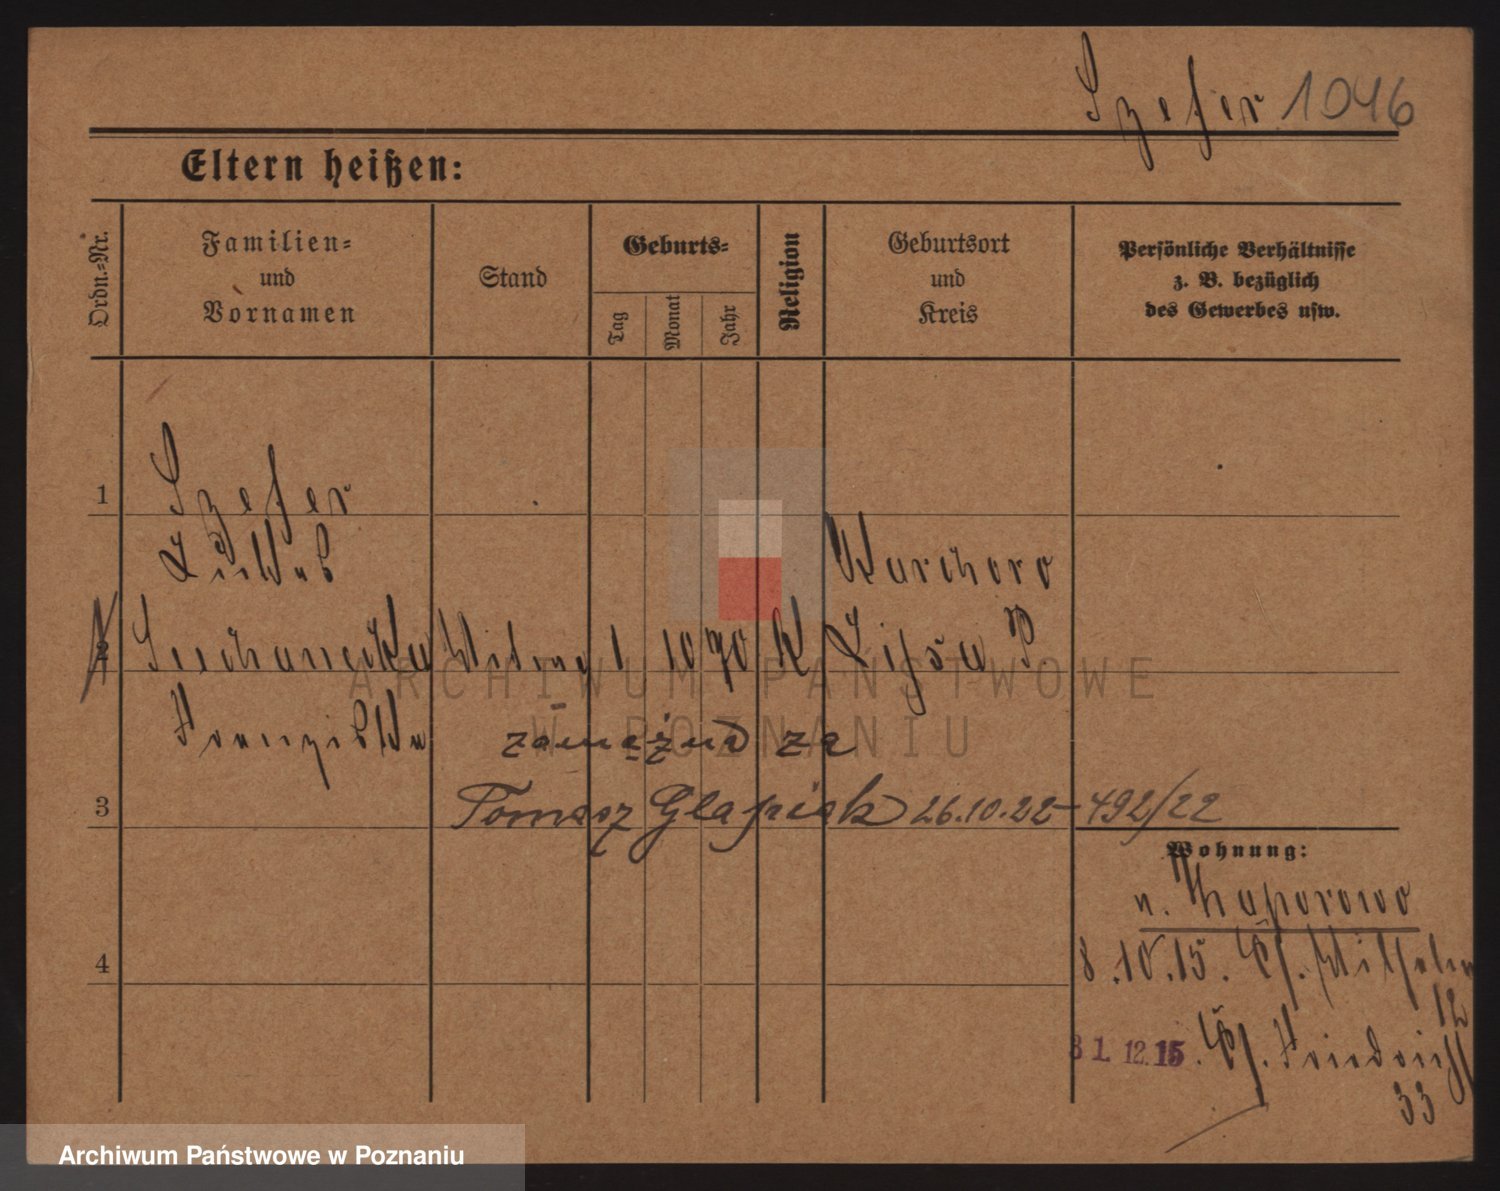 Szefer 1046
Eltern heißen:
Ordn.-Nr.
Familien-
und
Vornamen
Stand
Geburts-
Tag
Monat
Jahr
Religion
Geburtsort
und
Kreis
Persönliche Verhältnisse
z. B. bezüglich
des Gewerbes usw.
1
Szefer
2
1 10 70 K
Franziska
zamężna za
3
Tomasz Glapiak 26.10.22 - 492/22
Wohnung:
n.
4
8.10.15. Wilhelm
12
31.12.15. Friedrich
33
ARCHIWUM PAŃSTWOWE
W POZNANIU
Archiwum Państwowe w Poznaniu